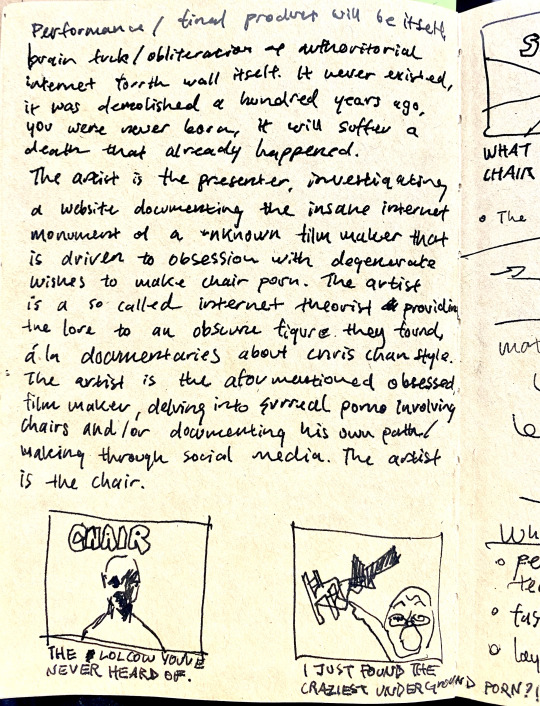 Performance / final product will be itself,
brain fuck / obliteration of authoritorial
internet fourth wall itself. It never existed,
it was demolished a hundred years ago,
you were never born, it will suffer a
death that already happened.
The artist is the presenter, investigating
a website documenting the insane internet
monument of a unknown film maker that
is driven to obsession with degenerate
wishes to make chair porn. The artist
is a so called internet theorist providing
the lore to an obscure figure they found,
á la documentaries about chris chan style.
The artist is the aforementioned obsessed
film maker, delving into surreal porno involving
chairs and/or documenting his own path/
making through social media. The artist
is the chair.
CHAIR
THE LOLCOW YOU'VE
NEVER HEARD OF.
I JUST FOUND THE
CRAZIEST UNDERGROUND PORN?!
WHAT
CHAIR
• The